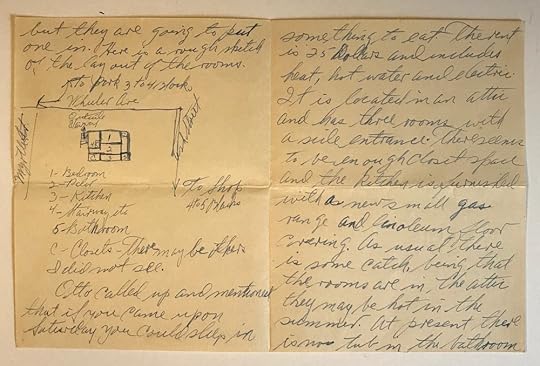 but they are going to put
one in. Here is a rough sketch
of the layout of the rooms.
to Work 3 to 4 blocks
Wheeler Ave
Outside
Stairway
1 - Bedroom
2 -
3 - Kitchen
4 - Stairway etc
5 - Bathroom
C - Closets - There may be others
I did not see.
To Shop
4 to 5 blocks
Otto called up and mentioned
that if you came upon
Saturday you could sleep in
something to eat. The rent
is 25 Dollars and includes
heat, hot water and electric.
It is located in an attic
and has three rooms with
a side entrance. There seems
to be enough closet space
and the kitchen is furnished
with as new small gas
range and linoleum floor
covering. As usual there
is some catch, being that
the rooms are in the attic
they may be hot in the
summer. At present there
is no tub in the bathroom